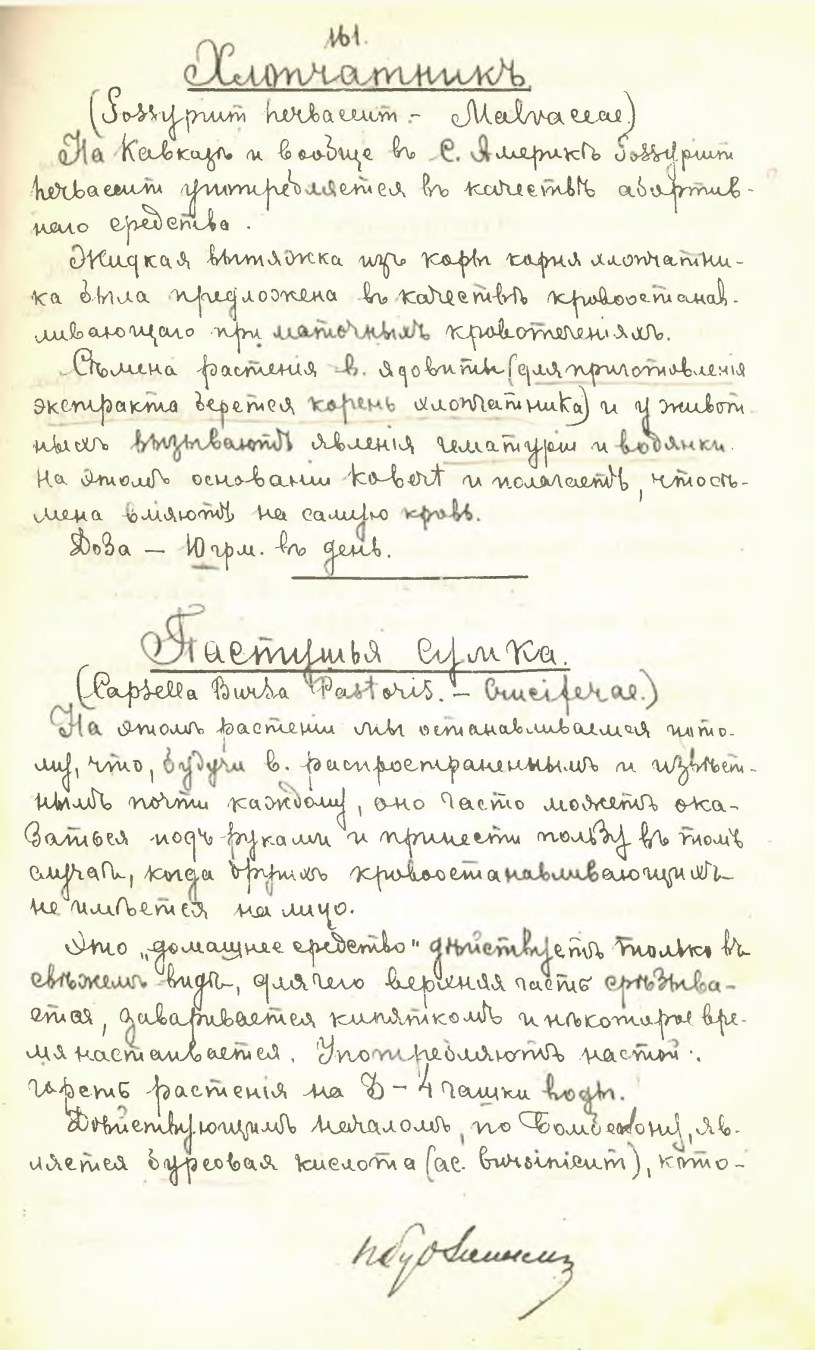 161.
Хлопчатникъ
(Gossypium herbaceum. – Malvaceae.)
На Кавказѣ и вообще въ С. Америкѣ Gossypium
herbaceum употребляется въ качествѣ абортив-
наго средства.
Жидкая вытяжка изъ коры корня хлопчатни-
ка была предложена въ качествѣ кровоостанав-
ливающаго при маточныхъ кровотеченіяхъ.
Сѣмена растенія в. ядовиты (для приготовленія
экстракта берется корень хлопчатника) и у живот
ныхъ вызываютъ явленія гематуріи и водянки.
На этомъ основаніи Kobert и полагаетъ, что сѣ-
мена вліяютъ на самую кровь.
Доза – 10 грм. въ день.
Пастушья сумка.
(Capsella Bursa Pastoris. – Cruciferae.)
На этомъ растеніи мы останавливаемся пото-
му, что, будучи в. распространеннымъ и извѣст-
нымъ почти каждому, оно часто можетъ ока-
заться подъ руками и принести пользу въ томъ
случаѣ, когда другихъ кровоостанавливающихъ
не имѣется на лицо.
Это „домашнее средство" дѣйствуетъ только въ
свѣжемъ видѣ, для чего верхняя часть срѣзыва-
ется, заваривается кипяткомъ и нѣкоторое вре-
мя настаивается. Употребляютъ настой:
горсть растенія на 3 – 4 чашки воды.
Дѣйствующимъ началомъ, по Бомбелону, яв-
ляется бурсовая кислота (ac. bursinicum), кото-